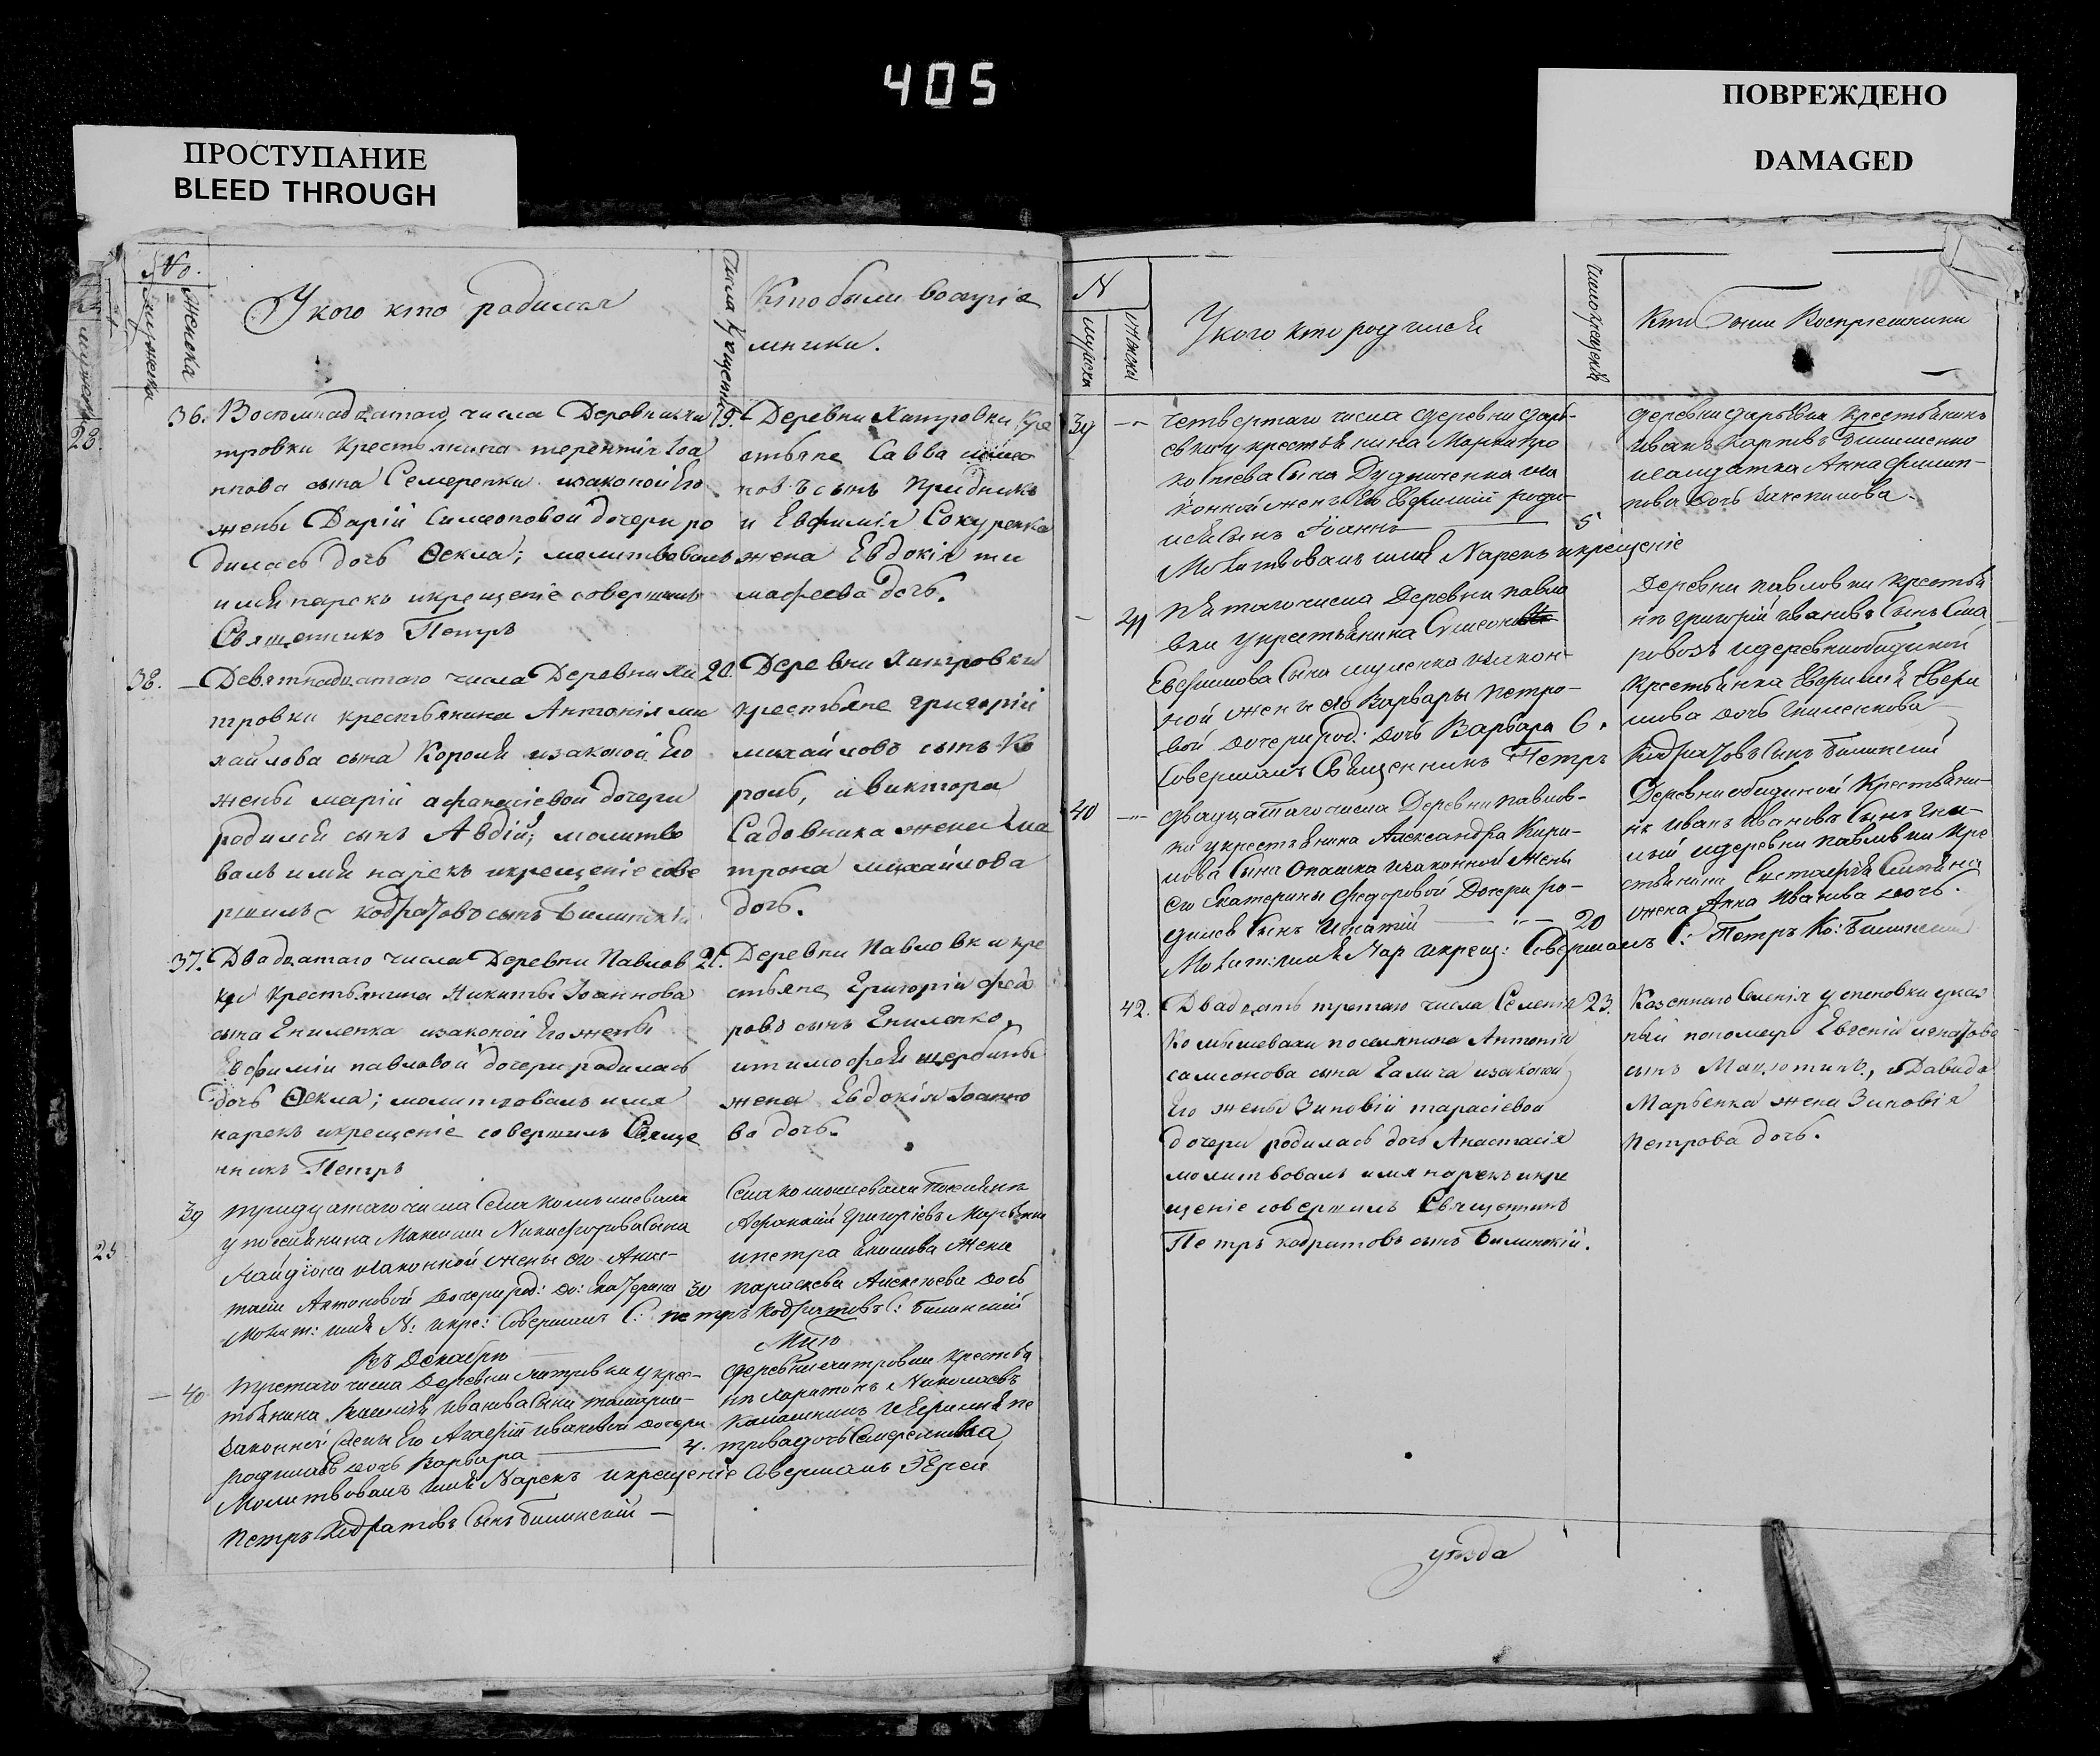 405
ПРОСТУПАНИЕ
BLEED THROUGH
ПОВРЕЖДЕНО
DAMAGED
No.
женска
У кого кто родился
Числа Крщенія
Кто были воспріе
мники.
28.
36. Восемнадцатаго числа Деревни Хи 19.
тровки Крестьянина терентія Іоа
ннова сына Семеренки изаконой Его
жены Дарій Симеоновой дочери ро
дилась дочь Ѳекла; молитвовалъ
имя нарекъ икрещеніе совершилъ
Священникъ Петръ
Деревни Хитровки Кре
стьяне Савва
новъ сынъ
и Евфимія Сокуренка
жена Евдокія ти
мофеева дочь.
38. Девятнадцатаго числа Деревни Хи 20.
тровки крестьянина Антонія ми
хайлова сына Короля изаконой Его
жены марій афанасіевой дочери
родился сынъ Авдій; молитво
валъ имя нарекъ икрещеніе сове
ршилъ кодратовъ сынъ Билинскій
Деревни Хитровки
крестьяне григорій
михайловъ сынъ Ко
роль, и виктора
Садовника жена Ма
трона михайлова
дочь.
37. Двадцатаго числа Деревни Павлов 21.
ки Крестьянина Никиты Іоаннова
сына Ениленка изаконой Его жены
Евфимій павловой дочери родилась
дочь Ѳекла; молитвовалъ имя
нарекъ икрещеніе совершилъ Свяще
нникъ Петръ
Деревни Павловки кре
стьяне Григорій фед
ровъ сынъ Ениленко,
итимофея щербины
жена Евдокія Іоанно
ва дочь.
25
39 тридцатаго числа Села комышевахи
у поселянина Максима Никифорова Сына
Майдіона изаконной жены его Анас-
тасіи Антоновой дочери род: до: Екатерина 30
Молит: имя N: икре: Совершилъ С: петръ Кодратовъ С: Билинскій
Села комышевахи Поселянъ
Афанасій Григоріевъ Марьенко
ипетра жена
параскева Алексеева дочь
Въ Декабрѣ
40 третаго числа Деревни хитривки укрес-
тьянина Василія Иванова Сына
Законной жены Его Агафіи Ивановой дочери
родилась дочь Варвара 4.
Молитвовалъ имя Нарекъ икрещеніе Совершилъ Іерей
Петръ Кодратовъ Сынъ Билинскій
деревни хитровки крестья
нъ харитонъ Николаевъ
Калашникъ иЕфимія пе
трова дочь Семеренкова
N
мужска
женска
У кого кто родился
число крещенія
Кто были Воспріемники
39 четвертаго числа деревни дарь-
евки у крестьянина Марка Про
копіева Сына Дудниченка иза
конной жены Его Евфимій роди-
лся Сынъ Іоаннъ 5
Молитвовалъ имя Нарекъ икрещеніе
деревни дарьевки крестьянинъ
Иванъ Карповъ
исалдатка Анна филип-
пова дочь
41 Пятаго числа Деревни павло
вки укрестьянина Симеона
Евфимова Сына изакон-
ной жены его Варвары Петро-
вой дочери род: дочь Варвара 6.
Совершилъ Священникъ Петръ Кодратовъ Сынъ Билинскій
Деревни павловки крестья
нъ григорій Ивановъ Сынъ
идеревни обидиной
крестьянка Евфимія Ефи
мова дочь
40 двадцатаго числа Деревни павлов-
ки укрестьянина Александра Кири-
лова Сына изаконной жены
его Екатерины Федоровой Дочери ро-
дился Сынъ Игнатій 20
Молит: имя Нар икрещ: Совершилъ С: Петръ Ко: Билинскій
Деревни обидиной Крестьяни-
нъ Иванъ Ивановъ Сынъ
идеревни павливки кре
стьянина
жена Анна Иванова дочь.
42. Двадцать третаго числа Селенія 23.
Комышевахи поселянина Антонія
самсонова сына Галича изаконой
Его жены Зиновій тарасіевой
дочери родилась дочь Анастасія
молитвовалъ имя нарекъ икре
щеніе совершилъ Священникъ
Петръ кодратовъ сынъ Билинскій.
Казеннаго Селенія успеновки указ
ный пономарь Евгеній игнатовъ
сынъ Максютинъ, и Давида
Марьенка жена Зиновія
петрова дочь.
уезда